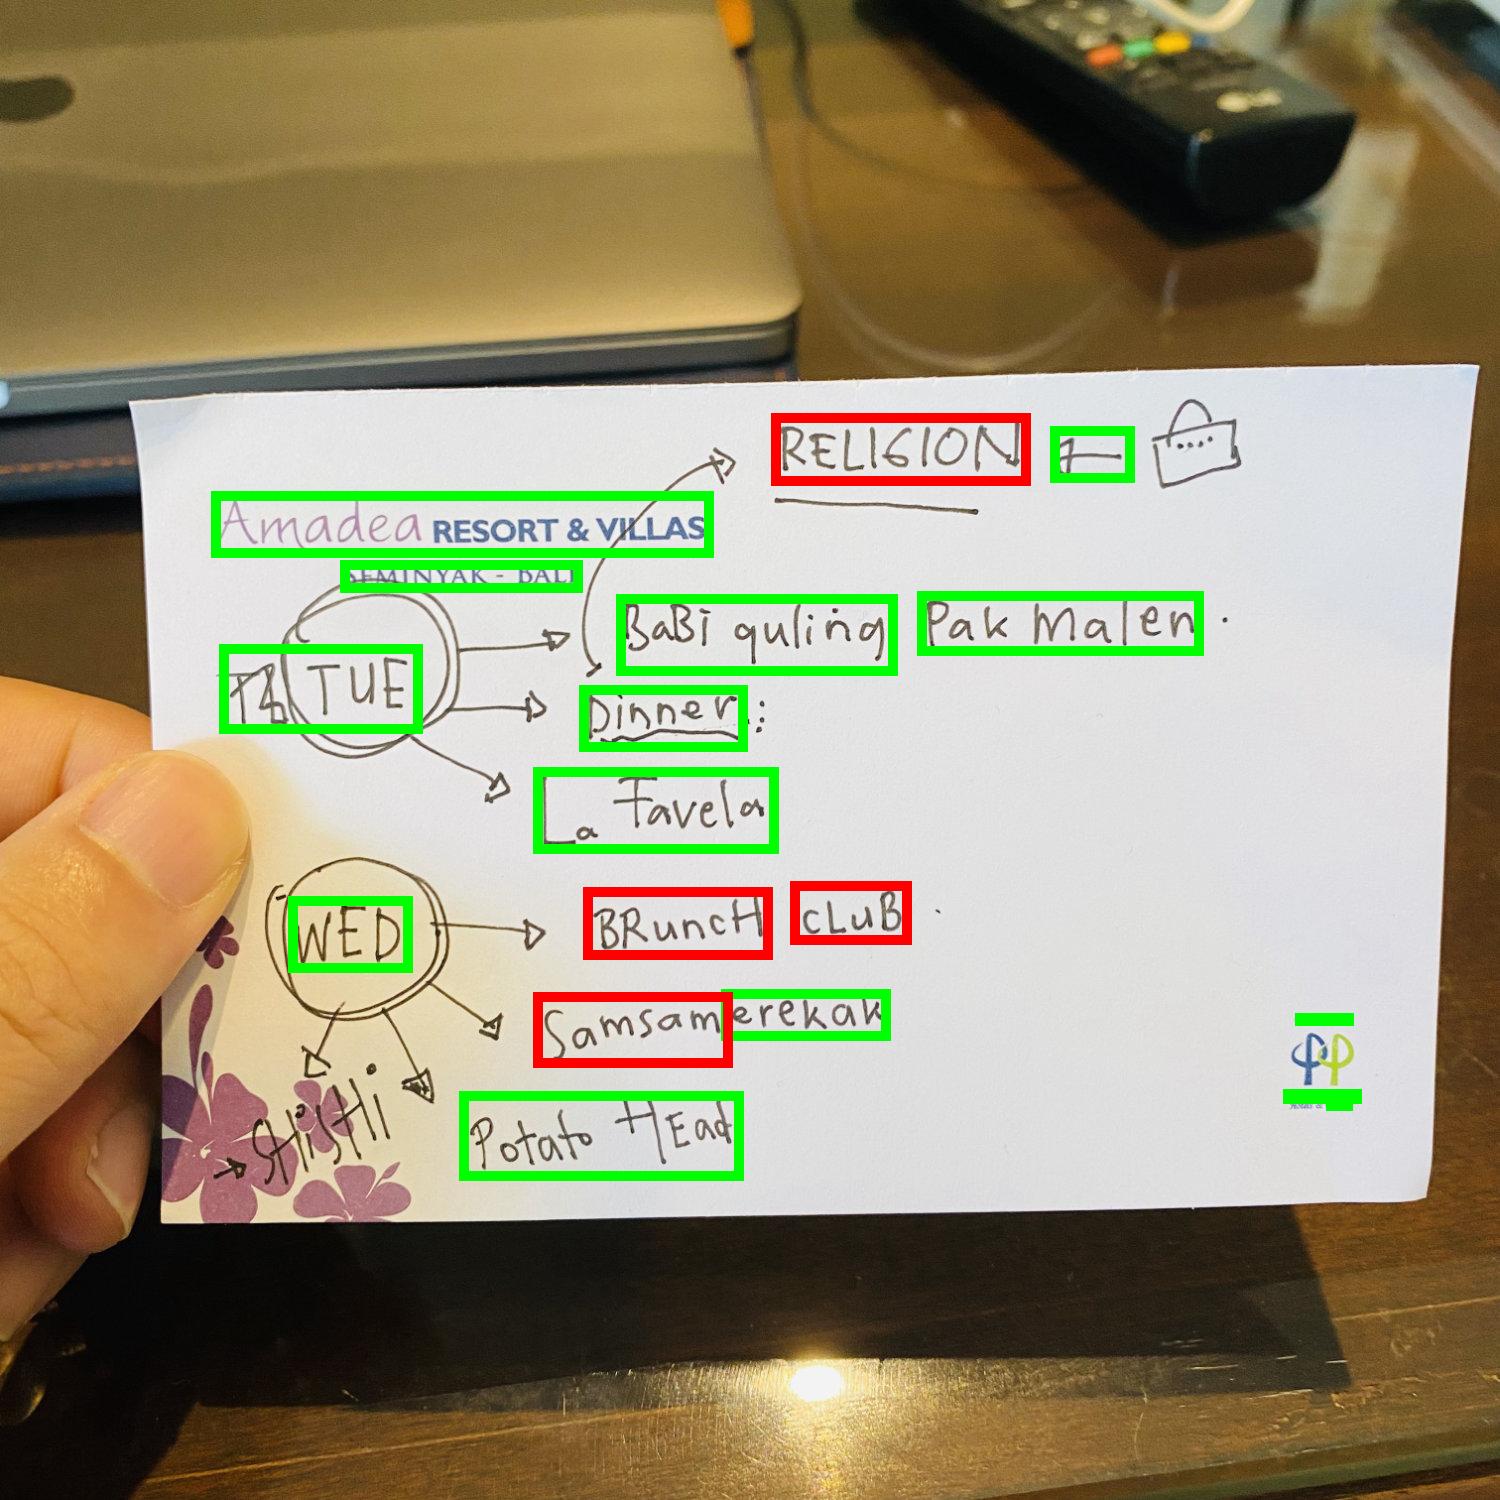 RELIGION
Amadea RESORT & VILLAS
SEMINYAK - BALI
BaBi guling Pak Malen.
TUE
Dinner :
La Favela
WED
BRuncH cLuB
Samsam erekak
Potato HEad
SHiSHi